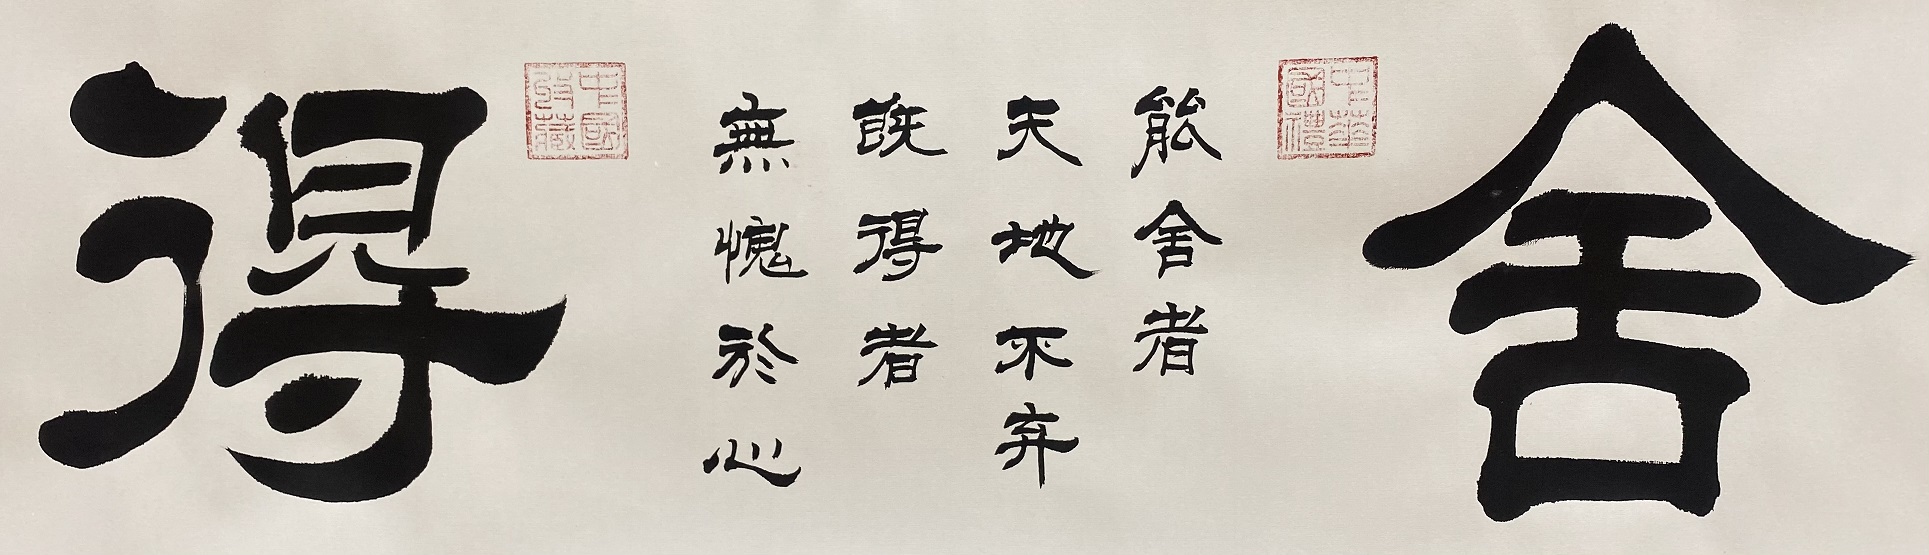 舍
中華
國禮
能舍者
天地不弃
既得者
無愧於心
中國
收藏
得